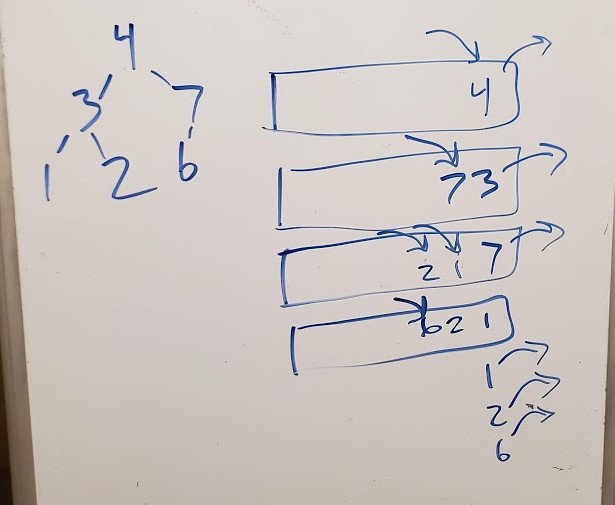 4
3 7
1 2 6
4
7 3
2 1 7
6 2 1
1
2
6